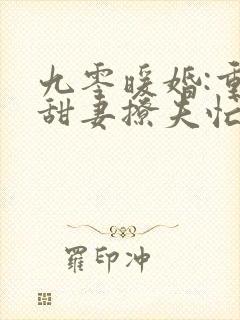 九零暖婚:重
甜妻撩夫忙
羅印冲